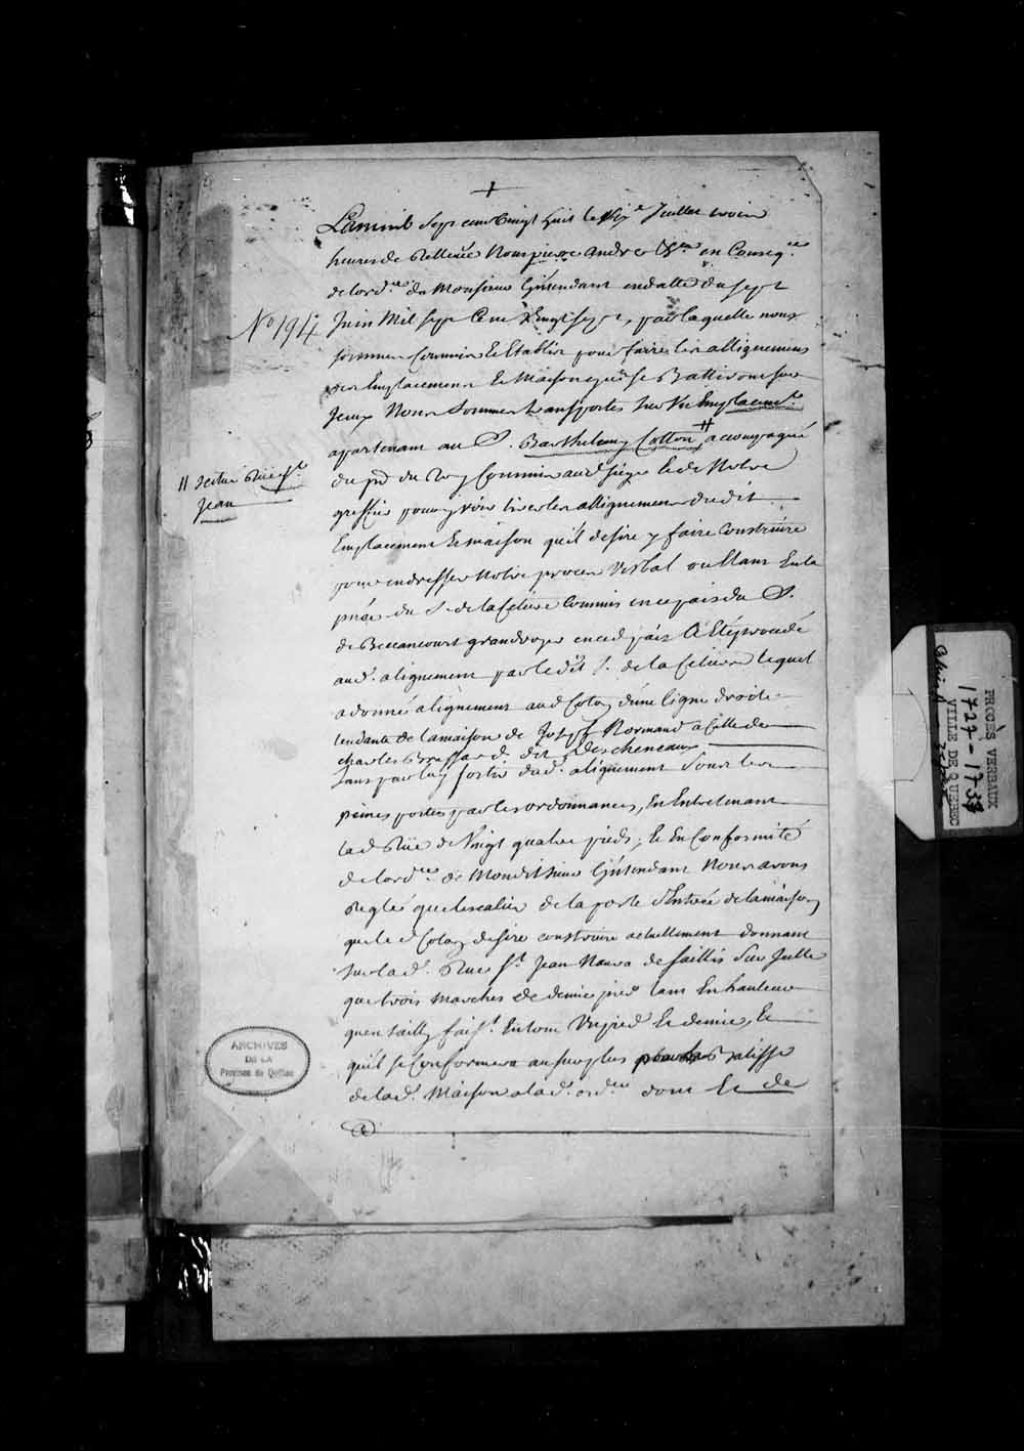 Lan mil sept cent vingt huit le Juillet trois
heures de Relleuée Nous pierre André Ecr. en Conseq.ce
de lord.ce de Monsieur Lintendant en datte du sept
No 194
Juin Mil sept Cent Vingt sept, par laquelle nous
sommes Commis Et Etablis pour faire les allignemens
des Emplacemens Et Maisons qui se Battiront sur
Jceux Nous Sommes transportés sur Un Emplacem.t
apartenant au S. Barthelemy Cotton # accompagné
// scitué Rüe S.t
Jean
du pr du Roy Commis aud. siege Et de Notre
greffier pour y voir tirer les allignemens dudit
Emplacement Et maison qu'il desire y faire Construire
pour en dresser Notre procez Verbal ou Etant En la
pñce du S. de la Cetiere Commis en ce païs du S.
de Beccancourt grand voyer en ced. païs A Eté procedé
aud. alignement par le dit S. de la Cetiere lequel
a donné alignement aud Coton d'une ligne droite
tendante de la maison de Joseph Normand a Celle de
charles Brassard dit Descheneaux
Sans pouvoir sortir dud. alignement Sous les
peines portées par les ordonnances, En Entretenant
lad Rüe de Vingt quatre pieds; Et En Conformité
de lord.ce de Mondit Sieur Lintendant Nous avons
Reglé que lescalier de la porte d'Entrée de la maison
que le d Coton desire construire actuellement donnant
sur lad. Rue S.t Jean Naura de saillis Sur Jcelle
que trois marches de demie pied tant En hauteur
quen sailly fais.t En tout Un pied Et demie, Et
qu'il se Conformera au surplus pour la Batisse
de lad. Maison a lad. ord.ce dont Et de
@
ARCHIVES
DE LA
Province de Québec
PROCÈS VERBAUX
1727-1737
VILLE DE QUEBEC